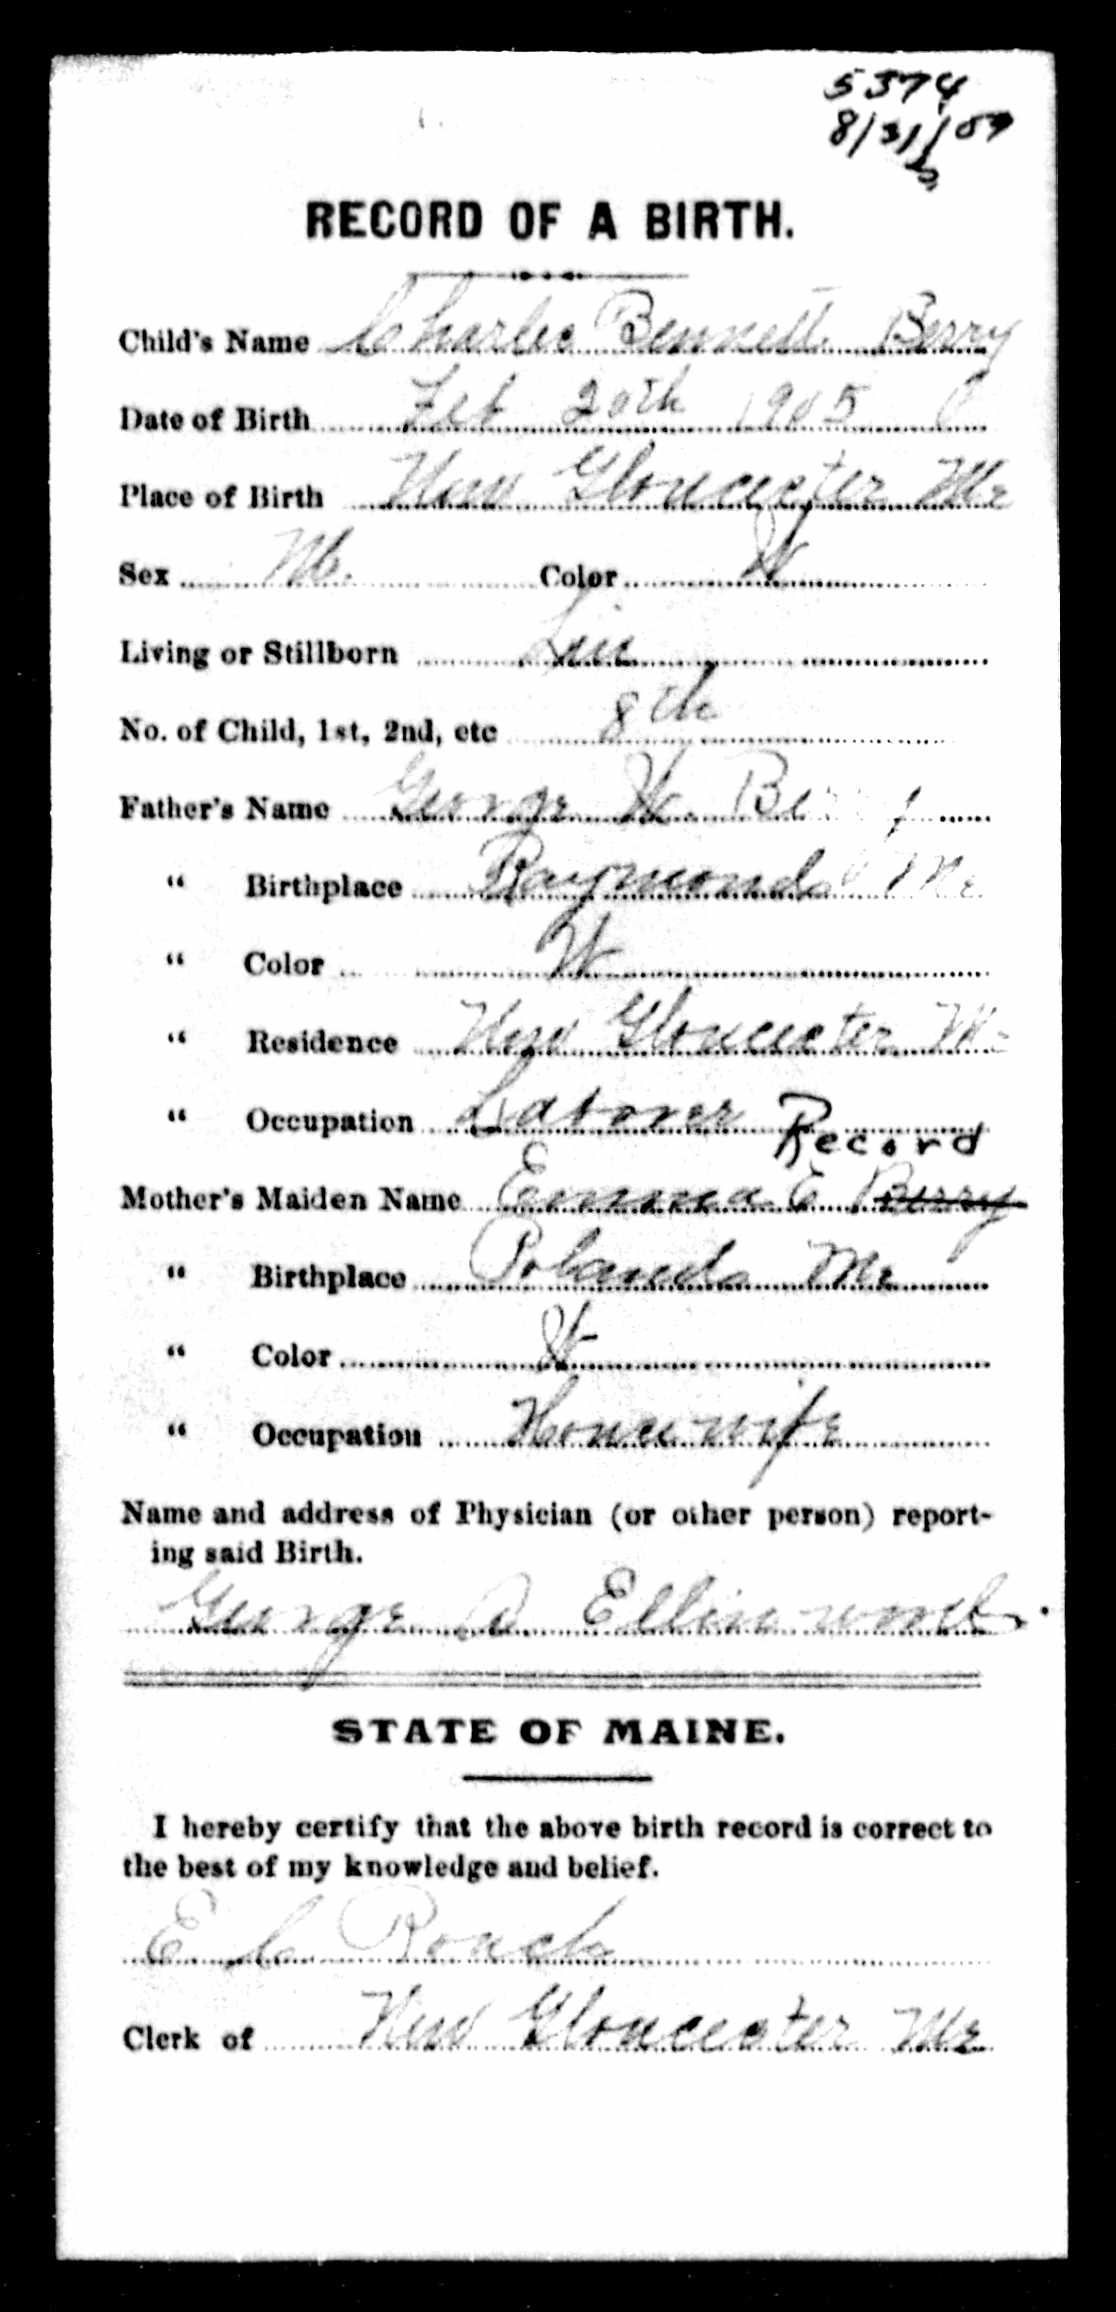 5374
8/31/
RECORD OF A BIRTH.
Child's Name Charles Bennett Berry
Date of Birth Feb 20th 1905
Place of Birth New Gloucester Me
Sex M. Color W
Living or Stillborn Liv
No. of Child, 1st, 2nd, etc 8th
Father's Name George W. Berry
" Birthplace Raymond Me
" Color W
" Residence New Gloucester Me
" Occupation Laborer
Record
Mother's Maiden Name Emma E Berry
" Birthplace Poland Me
" Color W
" Occupation Housewife
Name and address of Physician (or other person) report-
ing said Birth.
George Ellinwood
STATE OF MAINE.
I hereby certify that the above birth record is correct to
the best of my knowledge and belief.
E C
Clerk of New Gloucester Me